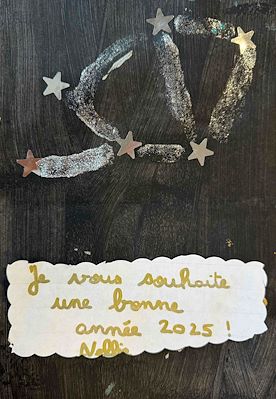 Je vous souhaite
une bonne
année 2025 !